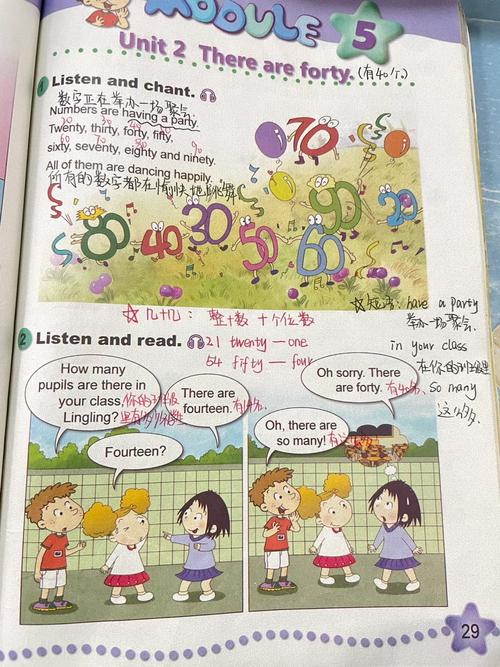 MODULE 5
Unit 2 There are forty. (有40个.)
1 Listen and chant.
数字正在举办一场聚会.
Numbers are having a party.
20 30 40 50
Twenty, thirty, forty, fifty,
60 70 80 90
sixty, seventy, eighty and ninety.
All of them are dancing happily.
所有的数字都在愉快地跳舞
70
90
20
80
40
30
50
60
☆几十几: 整十数 十个位数
☆短语: have a party
举办一场聚会.
in your class
在你的班级里
so many
这么多.
2 Listen and read.
21 twenty — one
54 fifty — four
How many
pupils are there in
your class,
Lingling?
你的班级
里有多少学生
There are
fourteen.
有14个.
Fourteen?
Oh sorry. There
are forty.
有40个.
Oh, there are
so many!
有这么多.
29